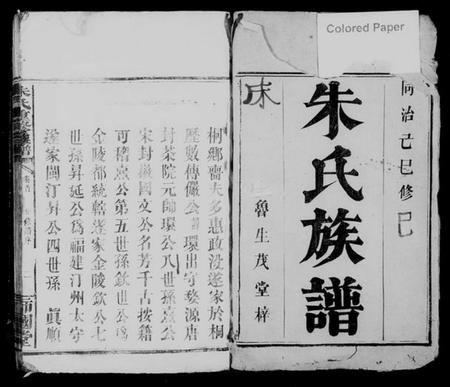 Colored Paper
同治己巳修
朱氏族譜
魯生茂堂梓
桐鄉嗇夫多惠政没遂家於桐
歷數傳儼公環出守婺源唐
封茶院元帥環公八世孫熹公
宋封徽國文公名芳千古拨籍
可稽熹公第五世孫欽世公為
金陵都統轄遂家金陵欽公七
世孫昇延公為福建汀州太守
遂家閩汀昇公四世孫 眞順